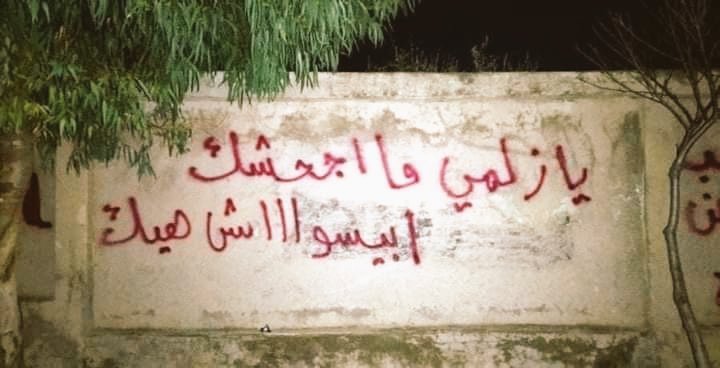 يا زلمي ماا اجحشك
ابيسوااااش هيك